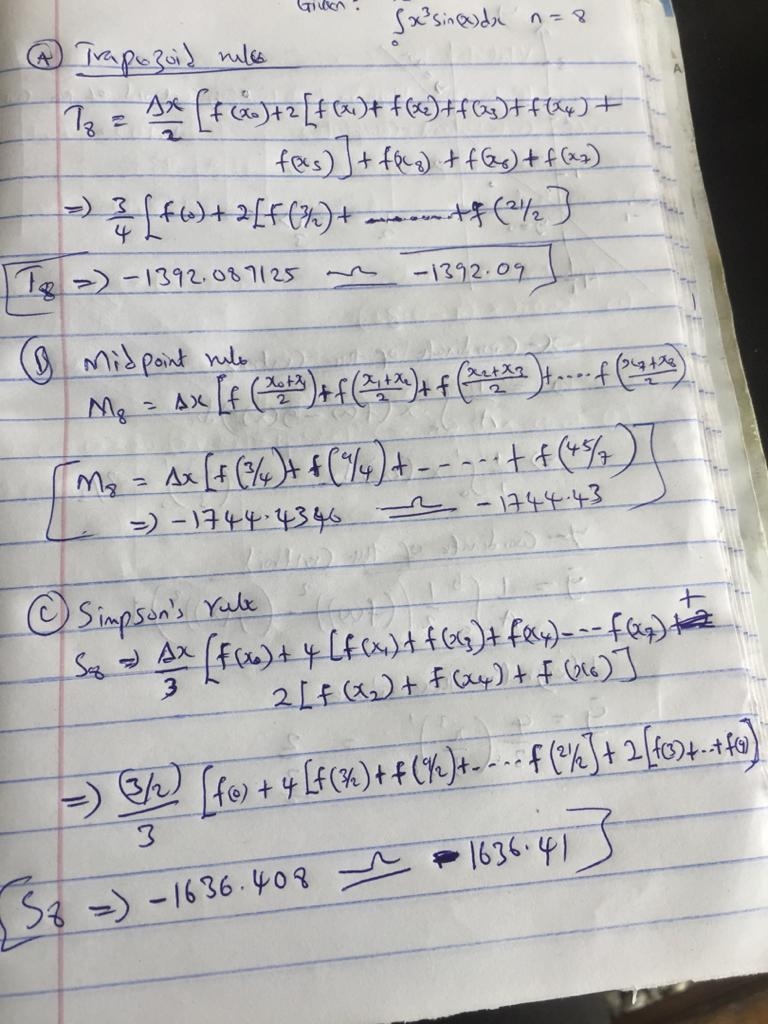 Given: ∫₀ x³sin(x)dx n = 8
(A) Trapozoid rules
T₈ = Δx/2 [f(x₀)+2[f(x₁)+f(x₂)+f(x₃)+f(x₄)+
f(x₅)]+f(x₈)+f(x₆)+f(x₇)
=) 3/4 [f(0)+2[f(3/2)+ -------- +f(21/2]
T₈ =) -1392.087125 ≏ -1392.09
(B) Midpoint rule
M₈ = Δx[f((x₀+x₁)/2)+f((x₁+x₂)/2)+f((x₂+x₃)/2)+....f((x₇+x₈)/2)
M₈ = Δx[f(3/4)+f(9/4)+-----+f(45/7)
=) -1744.4346 ≏ -1744.43
(C) Simpson's rule
S₈ => Δx/3 [f(x₀)+4[f(x₁)+f(x₃)+f(x₄)---f(x₇)+
2[f(x₂)+f(x₄)+f(x₆)]
=) (3/2)/3 [f(0)+4[f(3/2)+f(9/2)+-...f(21/2]+2[f(3)+..+f(9)]
S₈ =) -1636.408 ≏ -1636.41